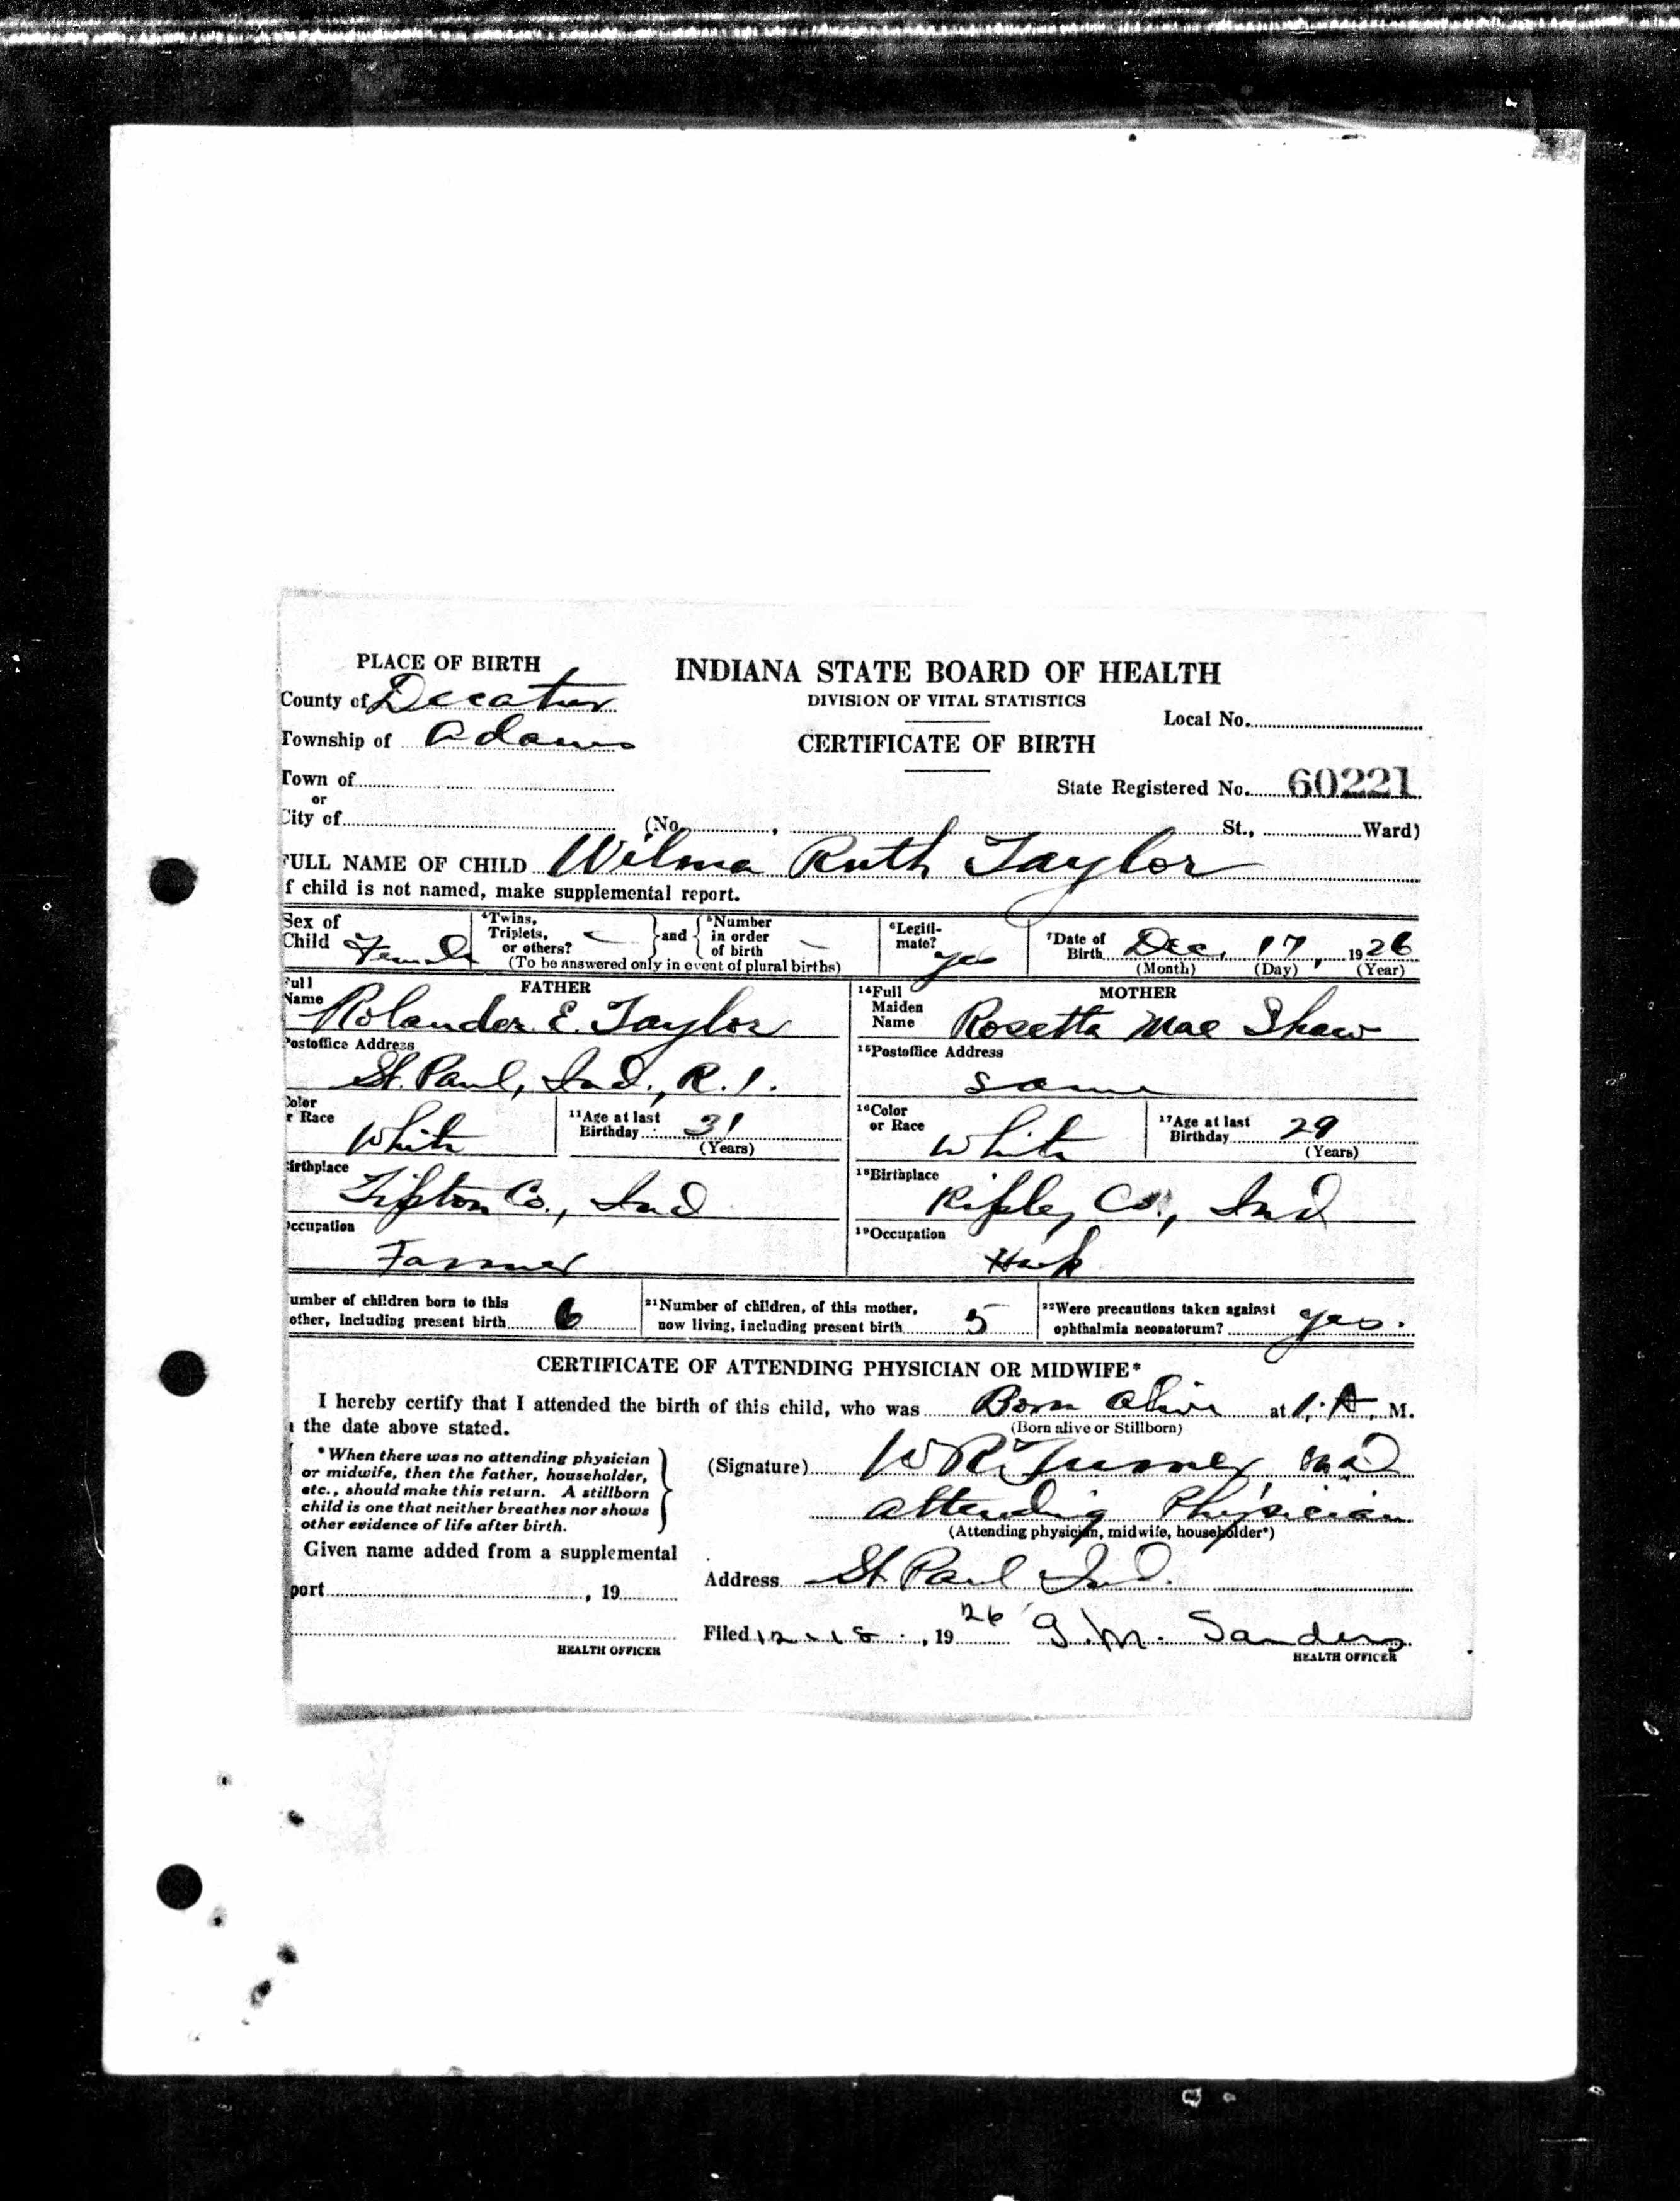 PLACE OF BIRTH
INDIANA STATE BOARD OF HEALTH
DIVISION OF VITAL STATISTICS
County of Decatur
Local No.
Township of Adams
CERTIFICATE OF BIRTH
Town of
or
State Registered No. 60221
City of (No. , St., Ward)
FULL NAME OF CHILD Wilma Ruth Taylor
f child is not named, make supplemental report.
Sex of
Child Female
4Twins,
Triplets,
or others? —
and
5Number
in order
of birth —
(To be answered only in event of plural births)
6Legiti-
mate? yes
7Date of
Birth Dec. 17, 1926
(Month) (Day) (Year)
FATHER
ull
Name Rolander E. Taylor
14Full
Maiden
Name
MOTHER
Rosetta Mae Shaw
Postoffice Address
St. Paul, Ind., R. 1.
15Postoffice Address
same
Color
r Race White
11Age at last
Birthday 31
(Years)
16Color
or Race White
17Age at last
Birthday 29
(Years)
Birthplace
Tipton Co., Ind
18Birthplace
Ripley Co., Ind
Occupation
Farmer
19Occupation
umber of children born to this
other, including present birth 6
21Number of children, of this mother,
now living, including present birth 5
22Were precautions taken against
ophthalmia neonatorum? yes.
CERTIFICATE OF ATTENDING PHYSICIAN OR MIDWIFE*
I hereby certify that I attended the birth of this child, who was Born alive at 1. A. M.
the date above stated.
(Born alive or Stillborn)
*When there was no attending physician
or midwife, then the father, householder,
etc., should make this return. A stillborn
child is one that neither breathes nor shows
other evidence of life after birth.
(Signature) W R Turner, M.D
Attending Physician
(Attending physician, midwife, householder*)
Given name added from a supplemental
port , 19
Address St. Paul Ind.
HEALTH OFFICER
Filed 12-18, 1926 G.M. Sanders
HEALTH OFFICER